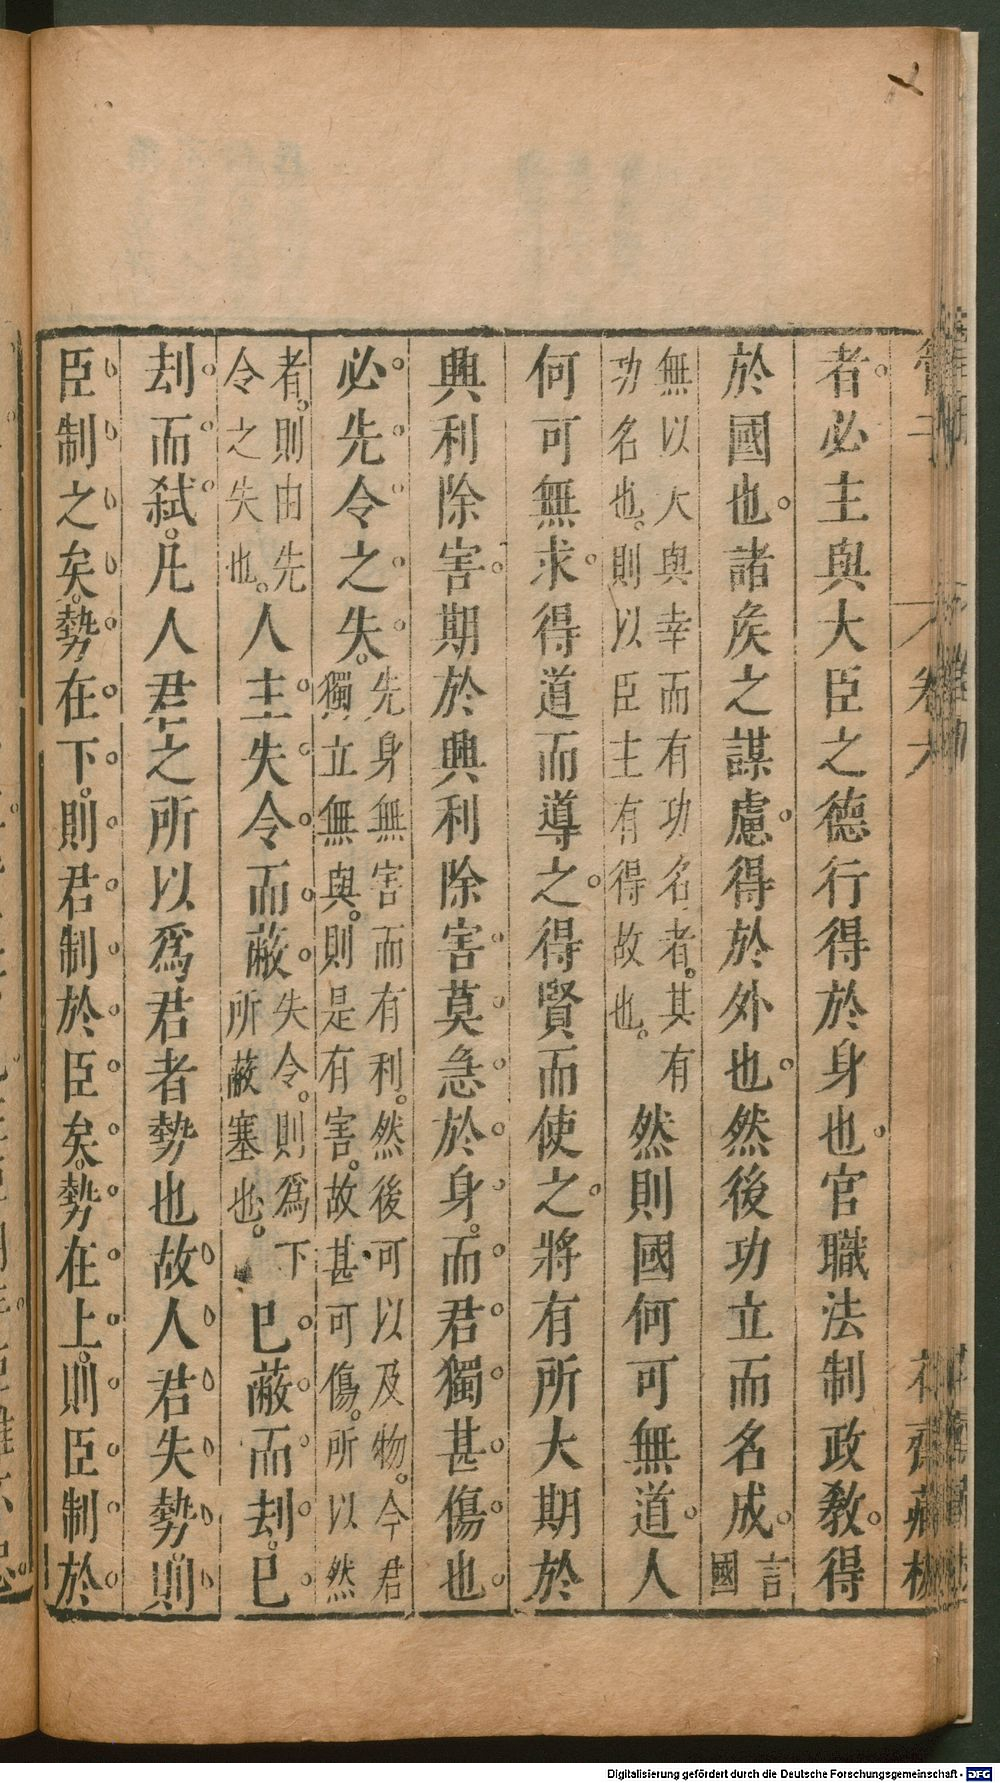 者必主與大臣之德行得於身也官職法制政教得
於國也諸矦之謀慮得於外也然後功立而名成言國
無以大與幸而有功名者其有功名也則以臣主有得故也然則國何可無道人
何可無求得道而導之得賢而使之將有所大期於
興利除害期於興利除害莫急於身而君獨甚傷也
必先令之失先身無害而有利然後可以及物今君獨立無與則是有害故甚可傷所以然
者則由先令之失也人主失令而蔽失令則爲下所蔽塞也巳蔽而刦巳
刦而弑凡人君之所以爲君者勢也故人君失勢則
臣制之矣勢在下則君制於臣矣勢在上則臣制於
卷六
Digitalisierung gefördert durch die Deutsche Forschungsgemeinschaft - DFG